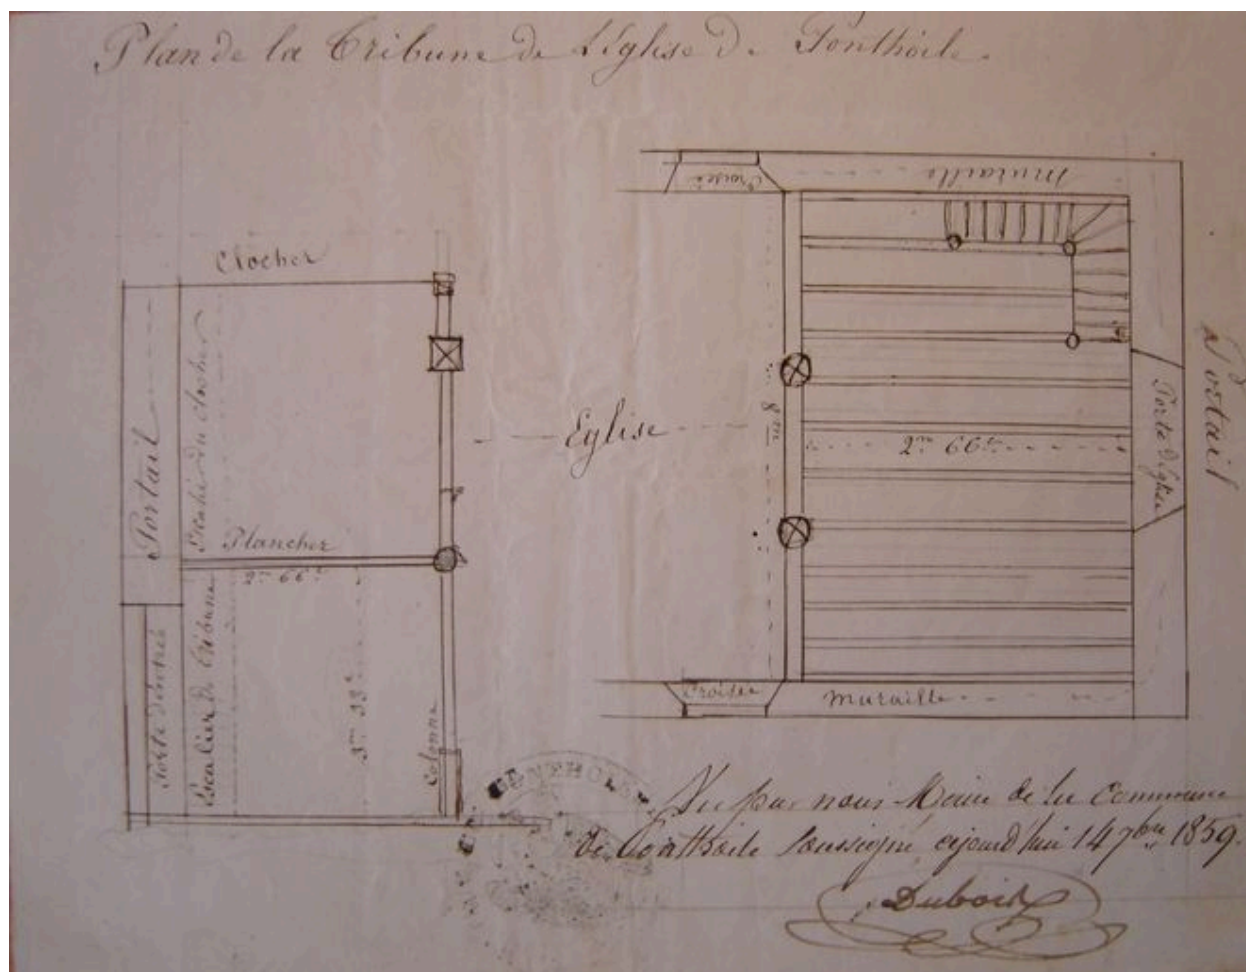 Plan de la Tribune de L'église de Ponthoile.
Clocher
Portail
du clocher
Plancher
2m 66c
Escalier de Tribune
3m 33c
Colonne
Eglise
Croisée
Muraille
Portail
Porte d'église
8m
2m 66c
Croisée
Muraille
Vu par nous Maire de la Commune
de Ponthoile Soussigné 14 7bre 1859.
Dubois